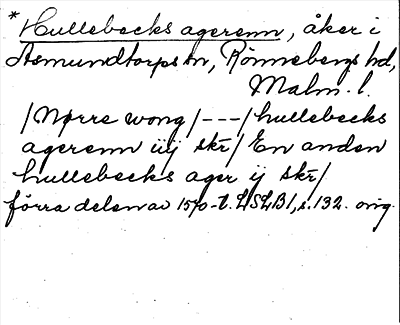 *Hullebecks agerenn, åker i
Asmundtorps sn, Rönnebergs hd,
Malm. l.
/Nørre wong/---/hullebecks
agerenn iiij skr̄/ En anden
hullebecks ager ij skr̄/
förra delen av 1570-t. LSLB1, s. 132. orig.